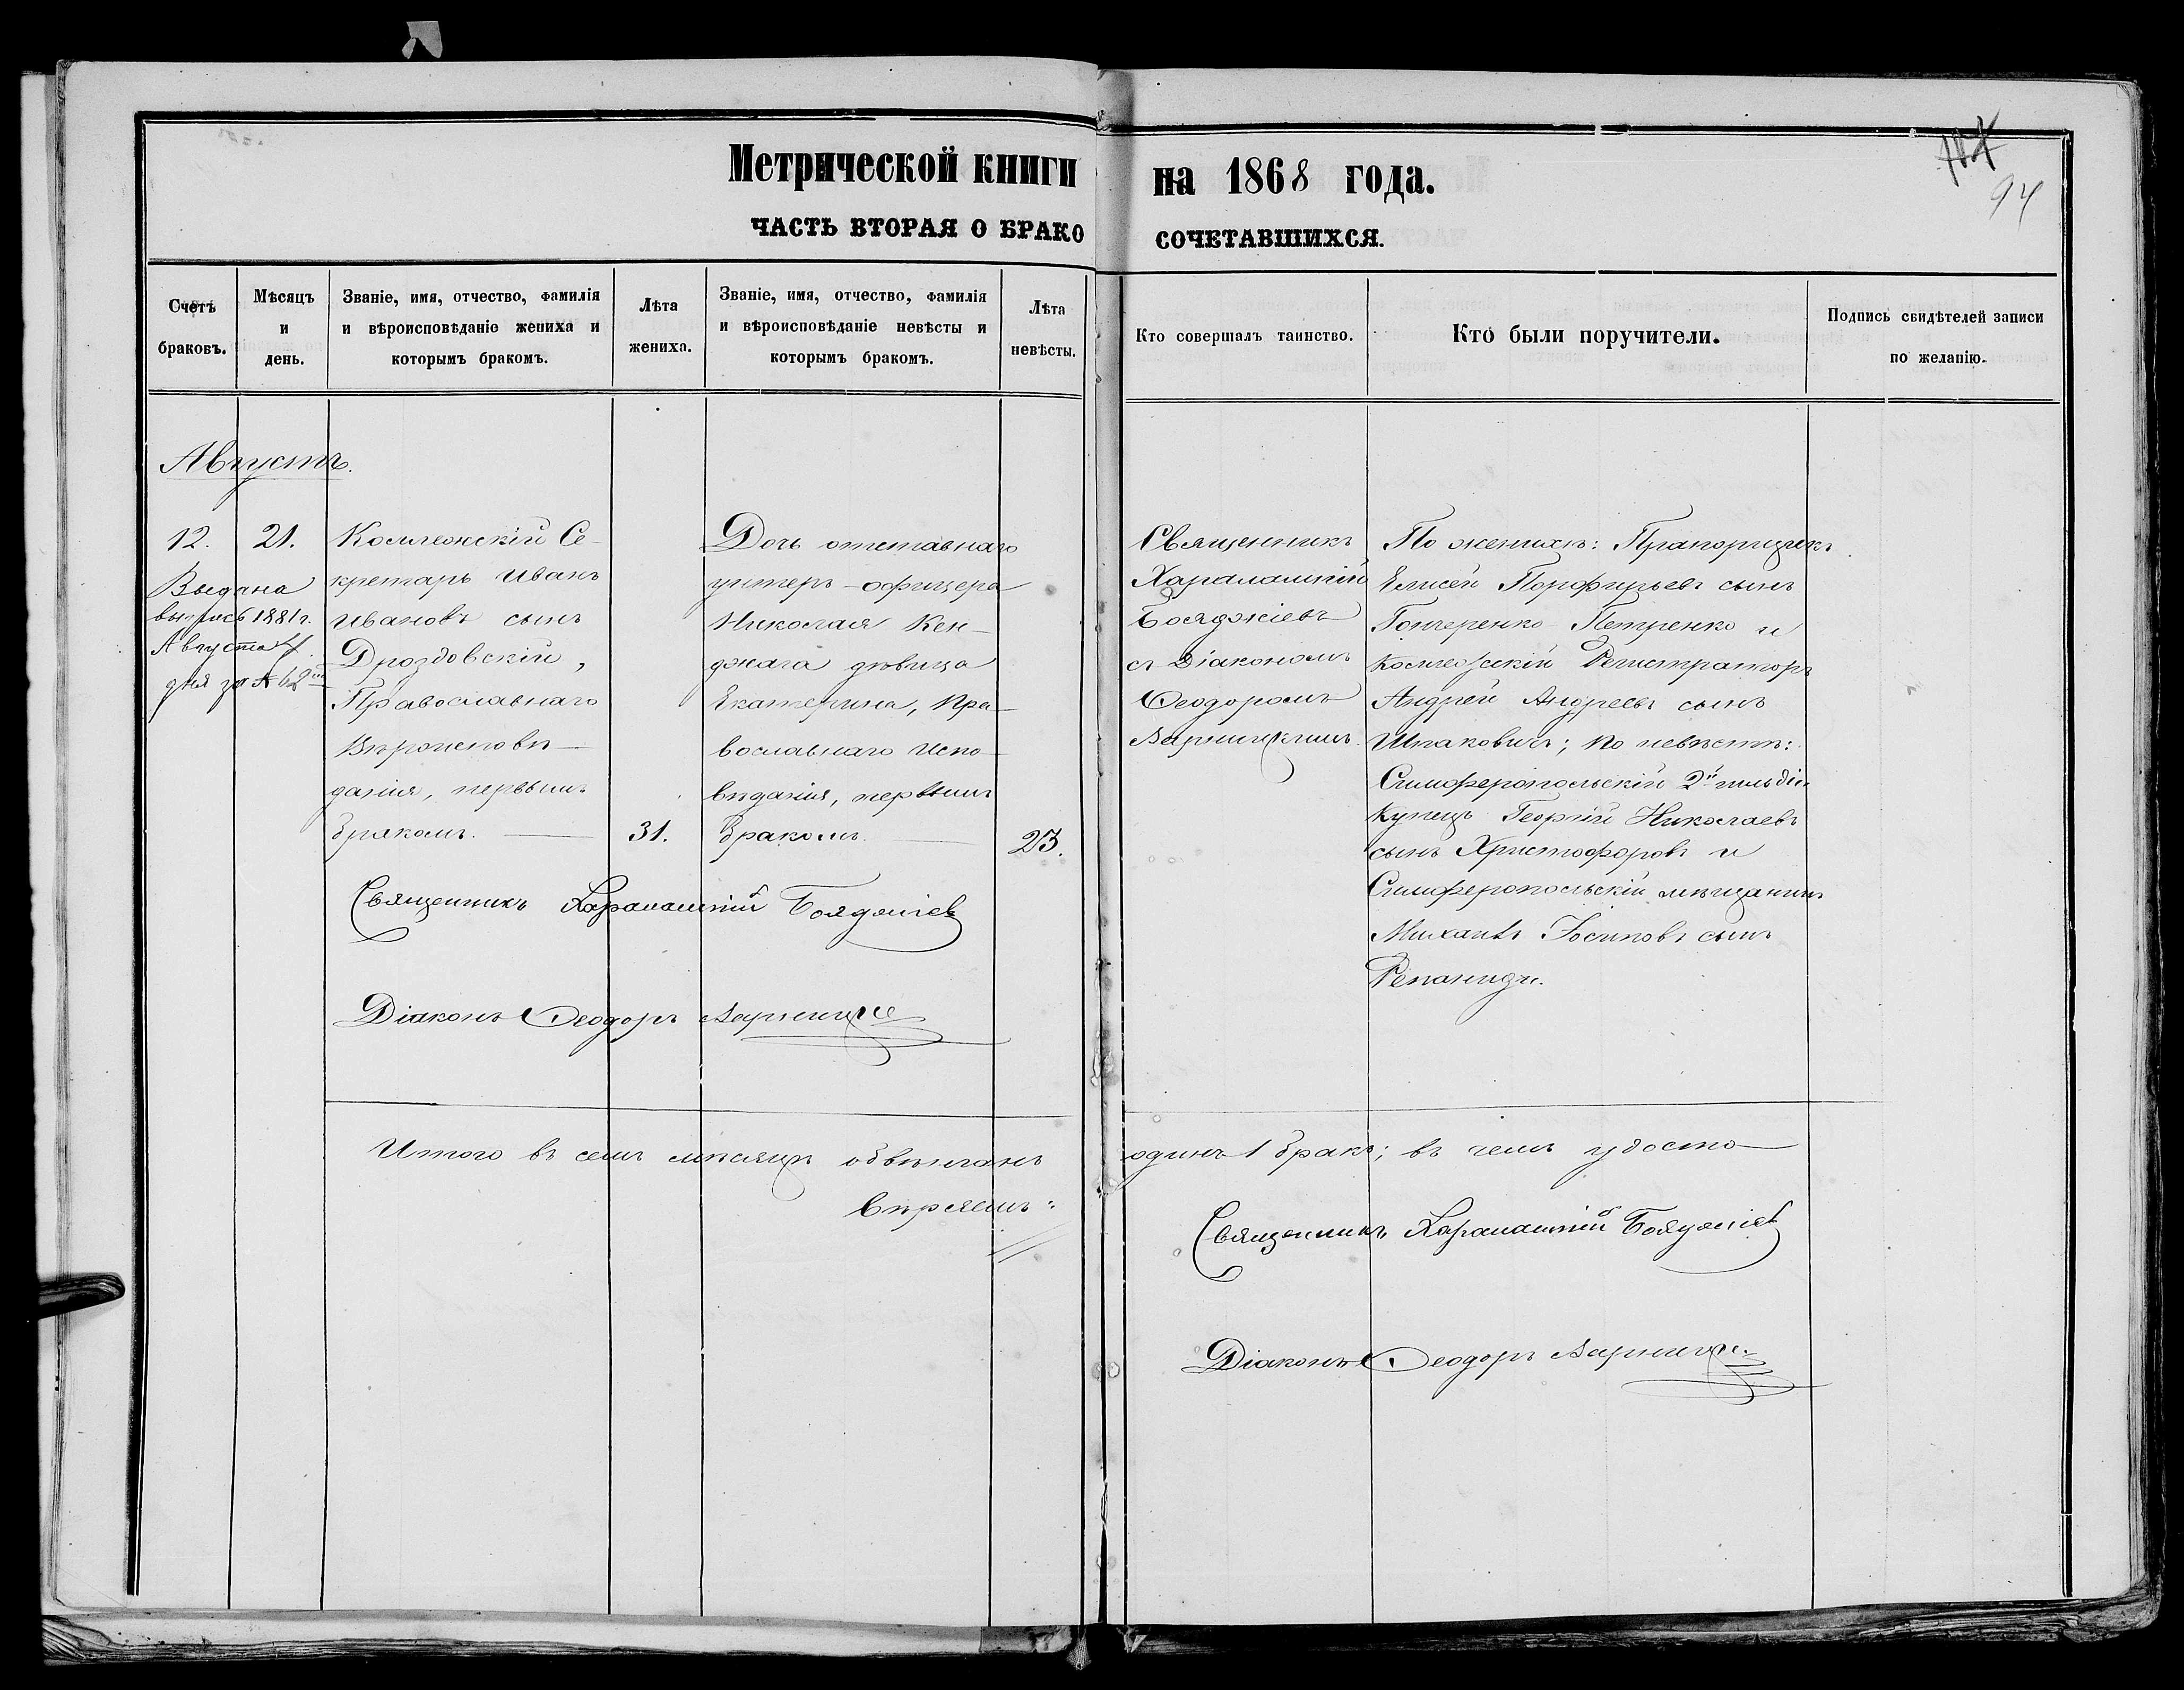 Метрической книги на 1868 года.
94
ЧАСТЬ ВТОРАЯ О БРАКО СОЧЕТАВШИХСЯ.
Счетъ браковъ.
Мѣсяцъ и день.
Званіе, имя, отчество, фамилія
и вѣроисповѣданіе жениха и
которымъ бракомъ.
Лѣта
жениха.
Званіе, имя, отчество, фамилія
и вѣроисповѣданіе невѣсты и
которымъ бракомъ.
Лѣта
невѣсты.
Кто совершалъ таинство.
Кто были поручители.
Подпись свидѣтелей записи
по желанію.
Августъ.
12.
Выдана
выпись 1881 г.
Августа
дня за № 62
21.
Коллежскій Се-
кретарь Иванъ
Ивановъ сынъ
Дроздовскій,
Православнаго
Вѣроисповѣ-
данія, первымъ
бракомъ.
31.
Дочь отставнаго
унтеръ-офицера
Николая Кен-
джага дѣвица
Екатерина, Пра-
вославнаго испо-
вѣданія, первымъ
бракомъ.
23.
Священникъ
Харалампій
Бояджіевъ
съ Діакономъ
Ѳеодоромъ
Варницкимъ.
По женихѣ: Прапорщикъ
Елисей Порфирьевъ сынъ
Гончеренко-Петренко и
Коллежскій Регистраторъ
Андрей Андреевъ сынъ
Шпаковичъ; По невѣстѣ:
Симферопольскій 2й гильдіи
Купецъ Георгій Николаевъ
сынъ Христофоровъ и
Симферопольскій мѣщанинъ
Михаилъ Іосиповъ сынъ
Репаниди.
Священникъ Харалампій Бояджіев
Діаконъ Ѳеодоръ Варницкі
Итого въ семъ мѣсяцѣ обвѣнчанъ одинъ 1 бракъ; въ чемъ удосто-
вѣряемъ:
Священникъ Харалампій Бояджіев
Діаконъ Ѳеодоръ Варницкі